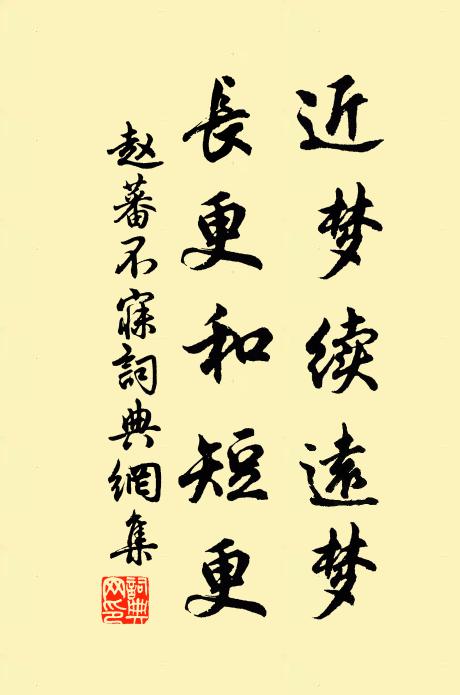 近梦续遠梦
長更和短更
赵蕃不寐詞典網集
詞典网印